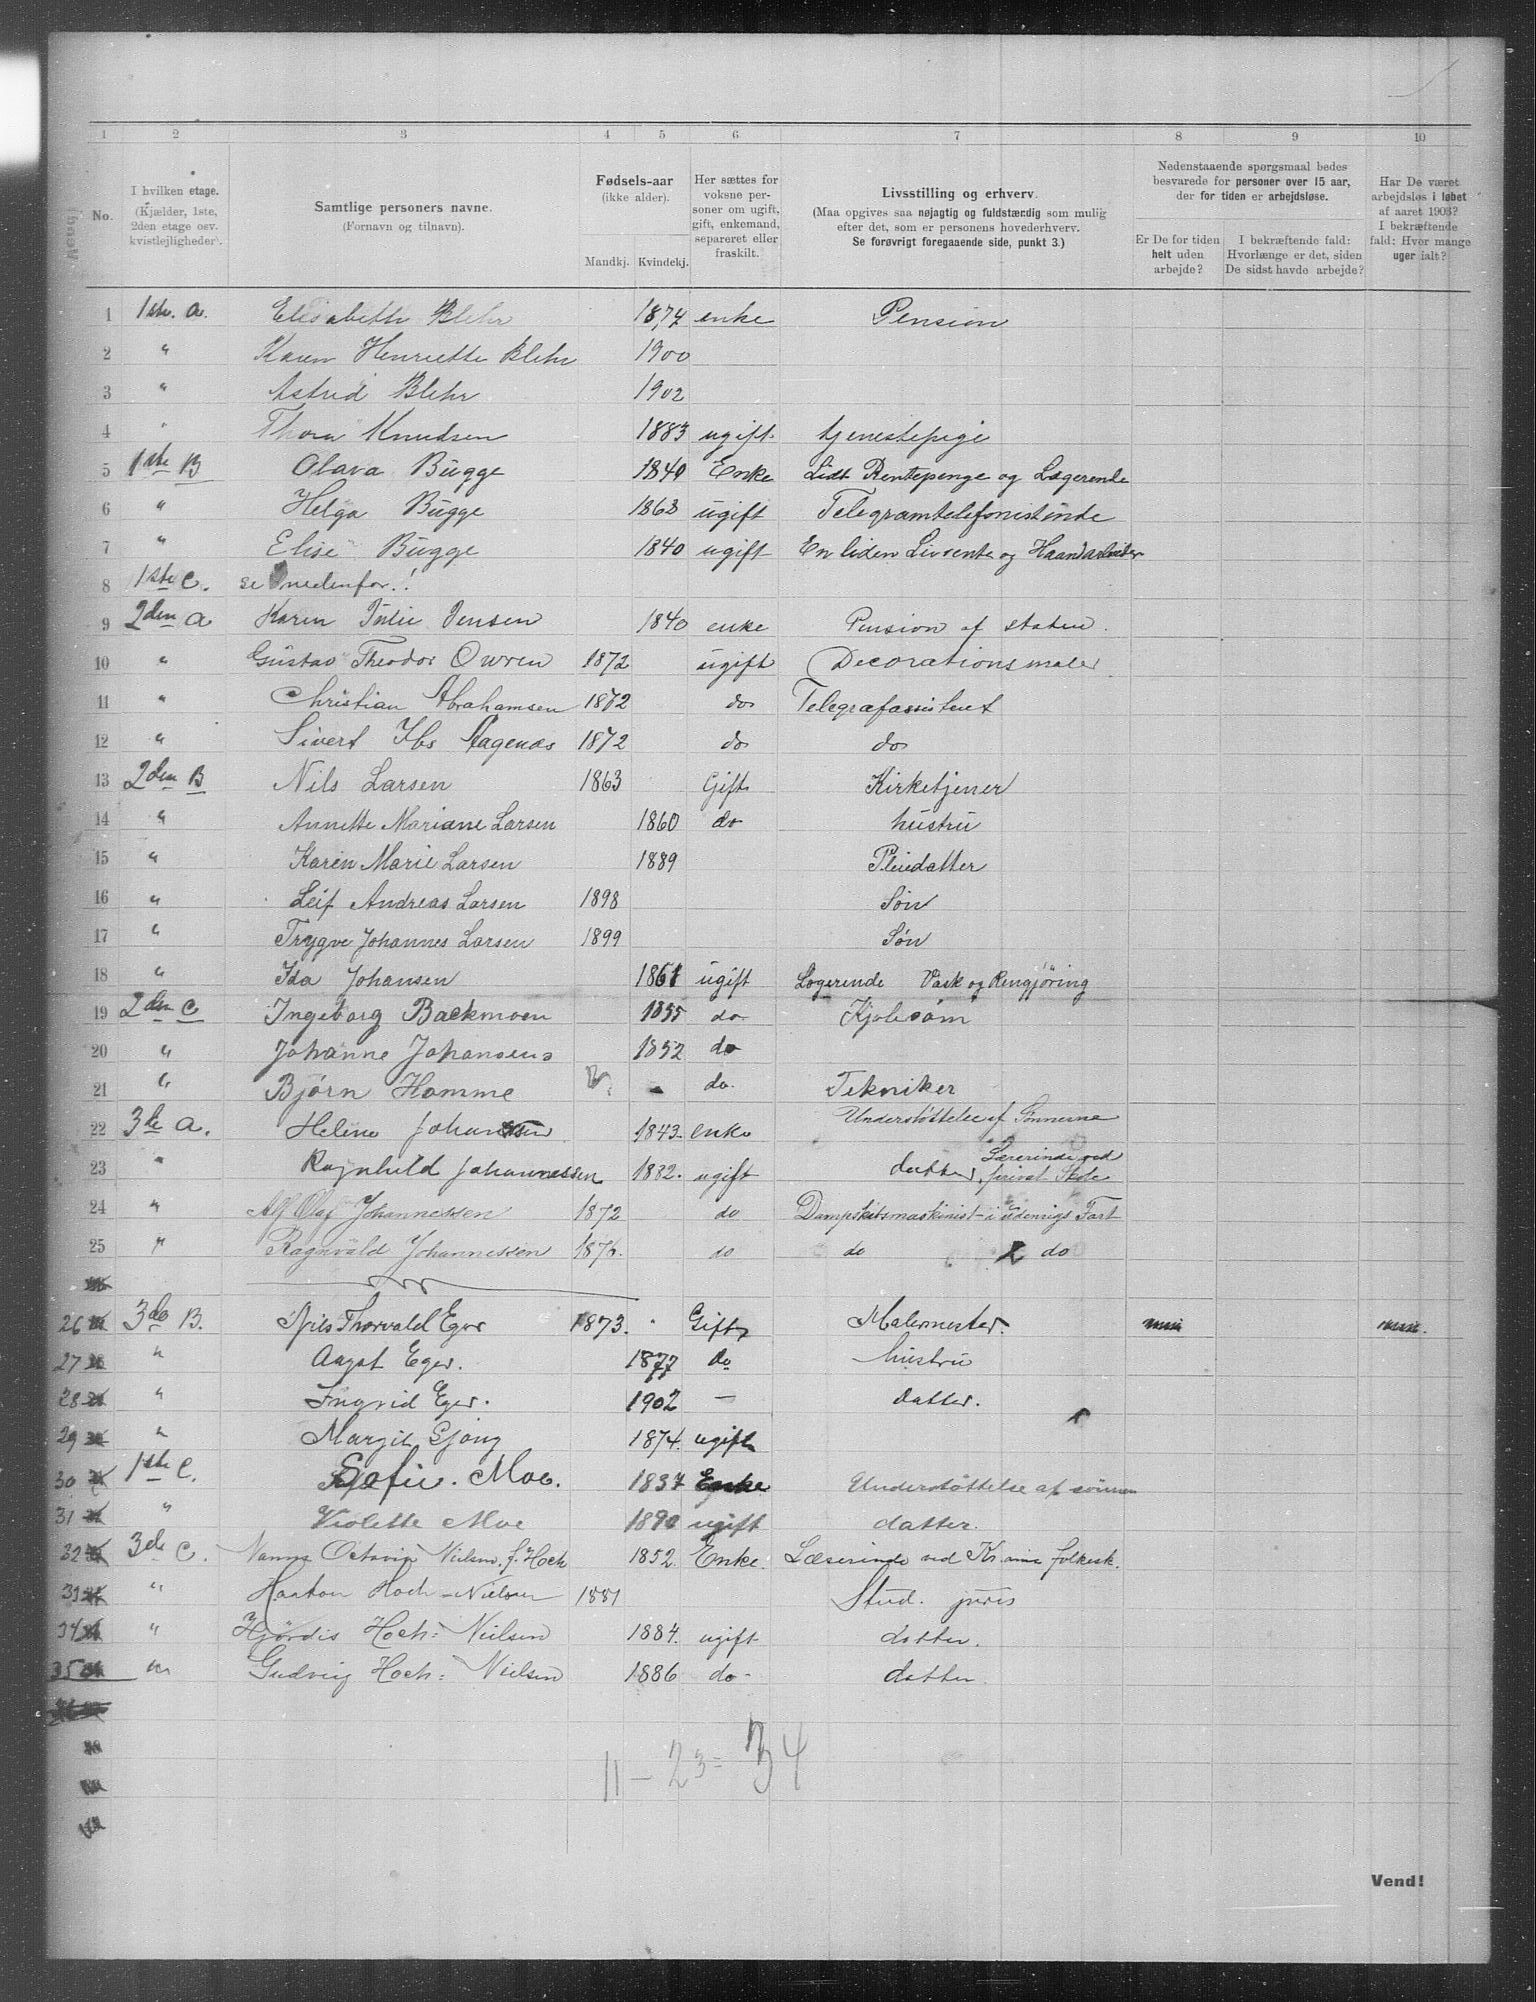 1 2 3 4 5 6 7 8 9 10
No.
I hvilken etage. (Kjælder, 1ste, 2den etage osv. kvistlejligheder).
Samtlige personers navne. (Fornavn og tilnavn).
Fødsels-aar (ikke alder). Mandkj. Kvindekj.
Her sættes for voksne personer om ugift, gift, enkemand, separeret eller fraskilt.
Livsstilling og erhverv. (Maa opgives saa nøjagtig og fuldstændig som mulig efter det, som er personens hovederhverv. Se forøvrigt foregaaende side, punkt 3.)
Nedenstaaende spørgsmaal bedes besvarede for personer over 15 aar, der for tiden er arbejdsløse.
Er De for tiden helt uden arbejde?
I bekræftende fald: Hvorlænge er det, siden De sidst havde arbejde?
Har De været arbejdsløs i løbet af aaret 1903? I bekræftende fald: Hvor mange uger ialt?
1 1ste. a. Elisabeth Blehr 1874 enke Pension
2 " Karen Henriette Blehr 1900
3 " Astrid Blehr 1902
4 " Thora Knudsen 1883 ugift tjenestepige
5 1ste B Olava Bugge 1840 Enke Lidt Rentepenge og Logerende
6 " Helga Bugge 1863 ugift Telegramtelefonistinde
7 " Elise Bugge 1840 ugift En liden Livrente og Haandarbeider
8 1ste C. se nedenfor.!
9 2den a Karen Julie Jensen 1840 enke Pension af staten.
10 " Gustav Theodor Owren 1872 ugift Decorationsmaler
11 " Christian Abrahamsen 1872 do Telegrafassistent
12 " Sivert Ibs Aagenæs 1872 do do
13 2den B Nils Larsen 1863 Gift Kirketjener
14 " Annette Mariane Larsen 1860 do hustru
15 " Karen Marie Larsen 1889 Pleiedatter
16 " Leif Andreas Larsen 1898 Søn
17 " Trygve Johannes Larsen 1899 Søn
18 " Ida Johansen 1861 ugift Logerende Vask og Rengjøring
19 2den C Ingeborg Backmoen 1855 do Kjolesøm
20 " Johanne Johansens 1852 do
21 " Bjørn Hamme do. Tekniker
22 3de a. Helene Johannsen 1843. enke Understøttelse af Sønnerne
23 " Ragnhild Johannessen 1882. ugift datter, Lærerinde ved privat Skole
24 " Alf Olaf Johannessen 1872 do Dampskibsmaskinist i Udenrigs Fart
25 " Ragnvald Johannessen 1876. do do do
26 3de B. Nils Thorvald Eger 1873. Gift Malermester.
27 " Aagot Eger. 1877 do hustru
28 " Ingrid Eger. 1902 — datter.
29 " Margit Gjong 1874. ugift
30 1ste C. Sofie. Moe. 1837 Enke Understøttelse af sønnen
31 " Violette Moe ugift datter.
32 3de C. Nanna Octavia Nielsen f. Hoch 1852. Enke. Lærerinde ved Kr.ania folkesk.
33 " Haakon Hoch-Nielsen 1881 Stud. juris
34 " Hjørdis Hoch-Nielsen 1884. ugift datter.
35 " Gudvig Hoch-Nielsen 1886 do- datter.
11 - 23 = 34
Vend!